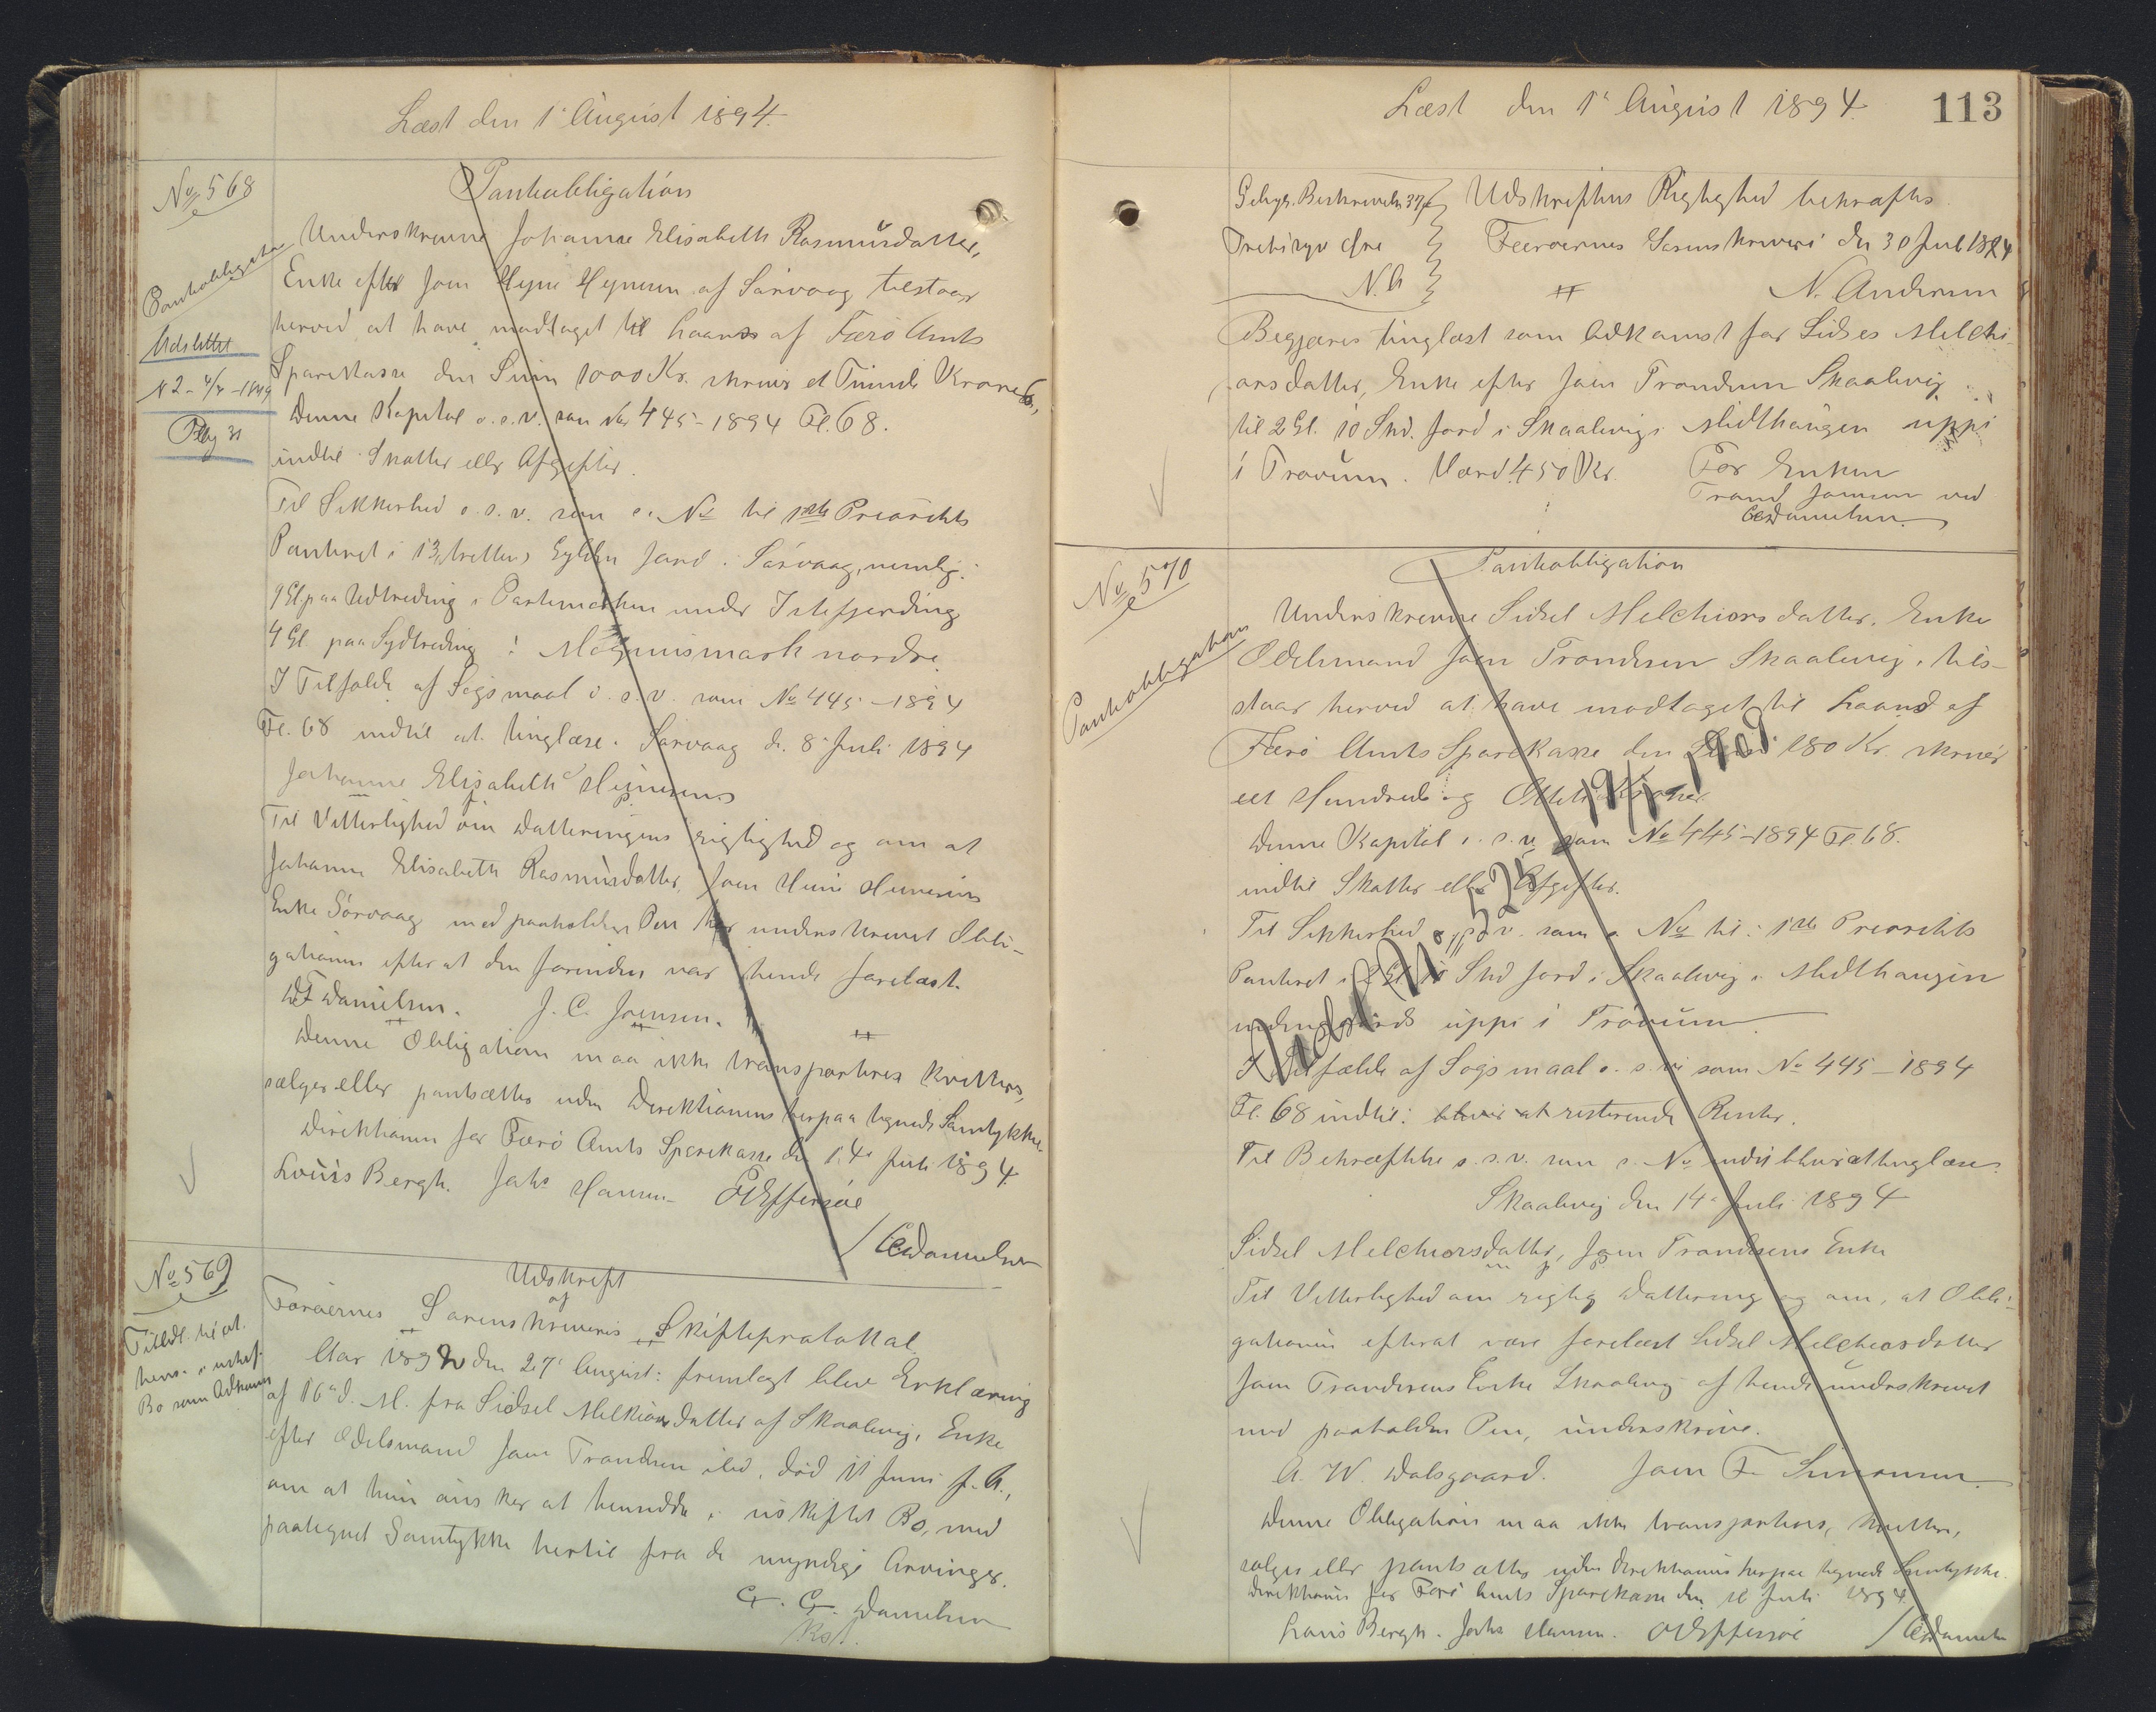 Læst den 1' August 1894.
No 568
Pantobligation
Pantobligation
Udslettet
N 2 - 4/7 - 1849
Underskrevne Johanne Elisabeth Rasmusdatter,
Enke efter Joen Hejne Hejnesen af Sørvaag tilstaar
herved at have modtaget til Laans af Færø Amts
Sparekasse den Sum 1000 Kr. skriver et Tusinde Kroner,
Denne Kapital o. s. v. som No 445 - 1894 Fl. 68.
indtil Skatter eller Afgifter.
Til Sikkerhed o. s. v. som s. No til 1ste Prioritets
Panteret i 13, tretten, Gylden Jord i Sørvaag, nemlig:
9 Gl paa Udtreding i under Istefjerding
4 Gl. paa Sydtreding i Magnusmark nordre
I Tilfælde af Søgsmaal o. s. v. som No 445 - 1894
Fl. 68 indtil at tinglæse. Sørvaag d. 8' Juli 1894
Johanne Elisabeth Hejnesens
Til Vitterlighed om Datteringens Rigtighed og om at
Johanne Elisabeth Rasmusdatter, Joen Heine Heinesens
Enke Sørvaag med paaholden Pen har underskrevet Obli-
gationen efter at den forinden var hende forelæst.
D F Danielsen. J. C. Joensen.
Denne Obligation maa ikke transporteres kvitteres,
sælges eller pantsættes uden Direktionens herpaa tegnede Samtykke.
Direktionen for Færø Amts Sparekasse d. 14' Juli 1894.
Louis Bergh. Johs Hansen. O Effersøe
/ CC Danielsen
No 569
Tilldl. til at
hens. i uskif.
Bo som Adkomst
Udskrift
af
Færøernes Sorenskriveris Skifteprotokol.
Aar 1892 den 27' August: fremlagt blev Erklæring
af 16' d. M. fra Sidsel Melkiorsdatter af Skaalevig, Enke
efter Odelsmand Joen Trondsen ibd, død 11 Juni f. A.,
om at hun ønsker at hensidde i uskiftet Bo, med
paategnet Samtykke hertil fra de myndige Arvinger.
C. C. Danielsen
Kst.
Læst den 1' August 1894. 113
Gebyr. Beskrivelse 37 Ø
Tretisyv Øre
N. A
Udskriftens Rigtighed bekræftes.
Færøernes Sorenskriveri den 30 Juli 1894
N. Andersen
Begjæres tinglæst som Adkomst for Sidses Melchi-
orsdatter, Enke efter Joen Trondsen Skaalevig
til 2 Gl. 10 Skd. Jord i Skaalevig i Midthaugen uppi
i Trøvum. Værd 450 Kr. For Enken
Trond Joensen ved
CC Danielsen.
No 570
Pantobligation
Pantobligation
Underskrevne Sidsel Melchiorsdatter, Enke
Odelsmand Joen Trondsen Skaalevig, tils-
staar herved at have modtaget til Laans af
Færø Amts Sparekasse den Sum 180 Kr. skriver
eet Hundrede og Otteti Kroner
Denne Kapital o. s. v. som No 445 - 1894 Fl. 68.
indtil Skatter eller Afgifter.
Til Sikkerhed o. s. v. som s. No til: 1ste Prioritets
Panteret i 2 Gl 10 Skd Jord i Skaalevig i Midthaugen
uppi i Trøvum.
I Tilfælde af Søgsmaal o. s. v. som No 445 - 1894
Fl. 68 indtil: resterende Renter.
Til Bekræftelse o. s. v. som s. No indtil tinglæse.
Skaalevig den 14' Juli 1894
Sidsel Melchiorsdatter, Joen Trondsens Enke
Til Vitterlighed om rigtig Dattering og om, at Obli-
gationen efterat være forelæst Sidsel Melchiorsdatter
Joen Trondsens Enke Skaalevig af hende underskrevet
med paaholden Pen, underskrive.
A. W. Dalsgaard. Joen Fr. Simonsen
Denne Obligation maa ikke transporteres, kvitteres,
sælges eller pantsættes uden Direktionens herpaa tegnede Samtykke.
Direktionen for Færø Amts Sparekasse den 16 Juli 1894.
Louis Bergh. Johs Hansen. O Effersøe / CC Danielsen